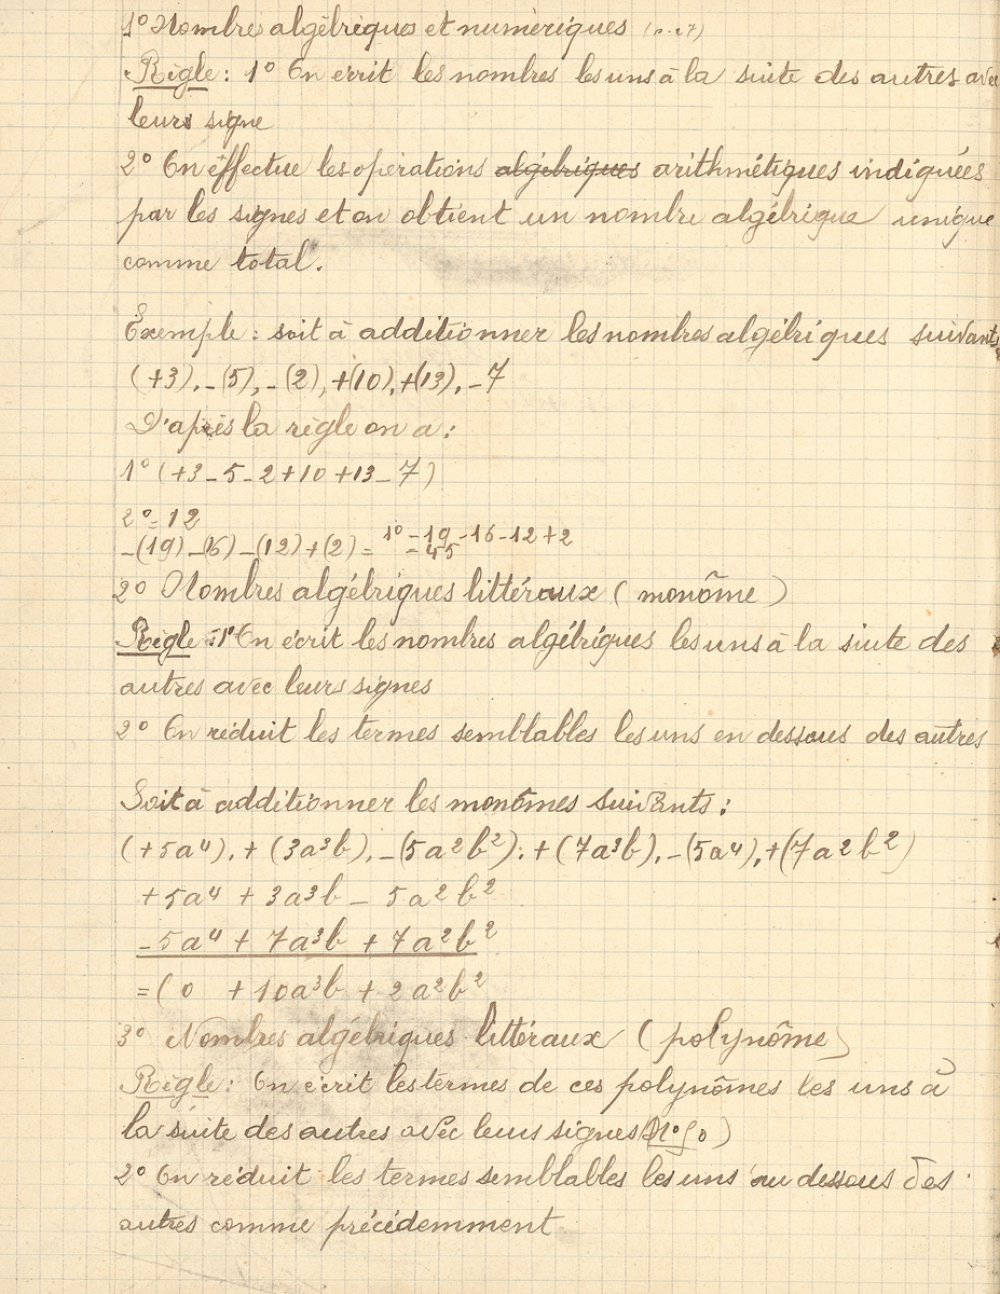 1° Nombre algébriques et numériques
Règle : 1° On écrit les nombres les uns à la suite des autres avec
leurs signe
2° On effectue les opérations algébriques arithmétiques indiquées
par les signes et on obtient un nombre algébrique unique
comme total.
Exemple : soit à additionner les nombres algébriques suivants
(+3), -(5), -(2), +(10), +(13), -7
D'après la règle on a :
1° (+3-5-2+10+13-7)
2° = 12
-(19)-(16)-(12)+(2) = 1° -19-16-12+2
= 45
2° Nombres algébriques littéraux (monôme)
Règle : 1° On écrit les nombres algébriques les uns à la suite des
autres avec leurs signes
2° On réduit les termes semblables les uns en dessous des autres
Soit à additionner les monômes suivants :
(+5a⁴), + (3a³b), -(5a²b²), + (7a³b), -(5a⁴), +(7a²b²)
+5a⁴ + 3a³b - 5a²b²
-5a⁴ + 7a³b + 7a²b²
= ( 0 + 10a³b + 2a²b²
3° Nombres algébriques littéraux (polynôme)
Règle : On écrit les termes de ces polynômes les uns à
la suite des autres avec leurs signes
2° On réduit les termes semblables les uns au dessous des
autres comme précédemment